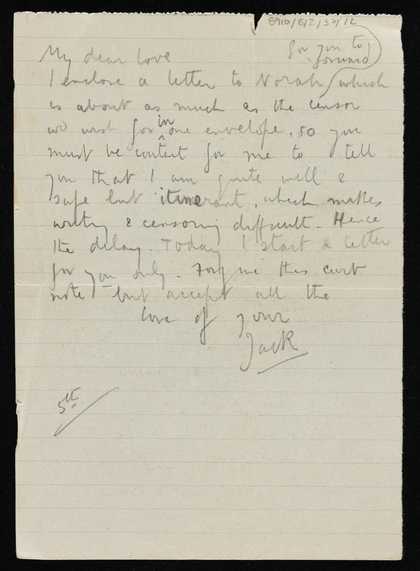 8910/6/2/37/12
My dear Love
for you to
forward
I enclose a letter to Norah, which
is about as much as the censor
wd wish for in one envelope, so you
must be content for me to tell
you that I am quite well &
safe but itinerant, which makes
writing & censoring difficult. Hence
the delay. Today I start a letter
for you only. Forgive me this curt
note but accept all the
love of your
Jack
5th